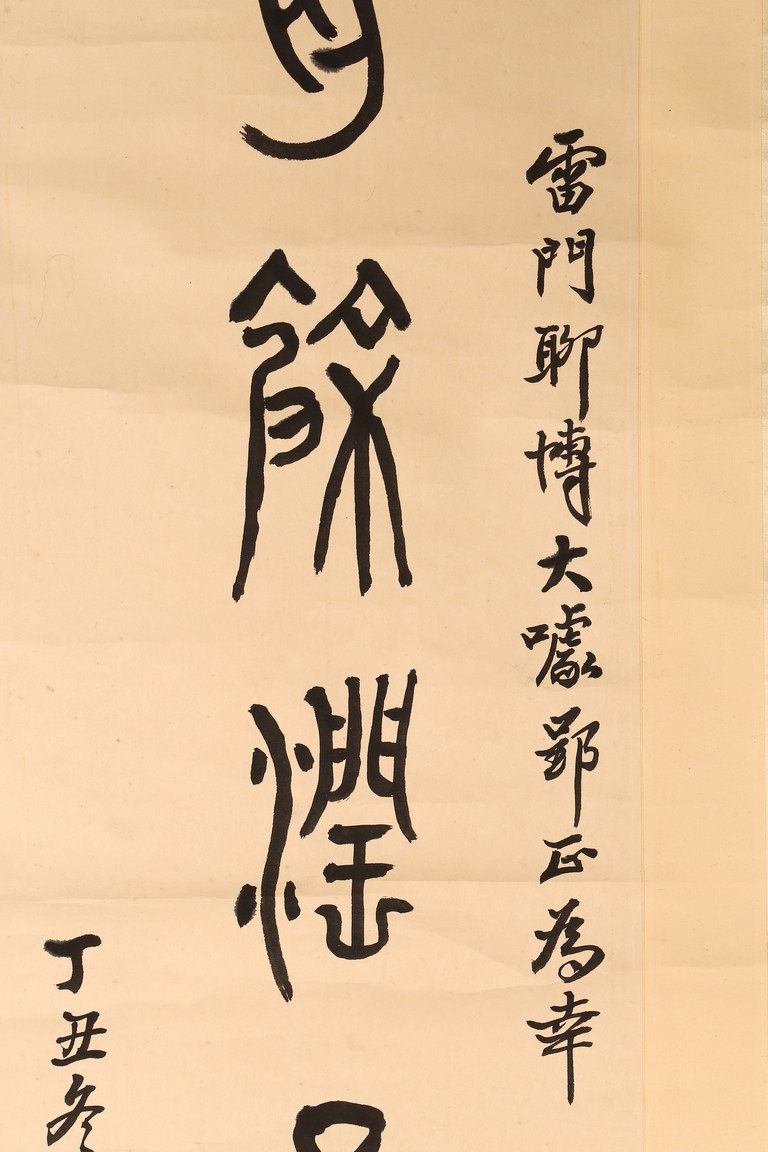 雷門聊博大噱郢正為幸
餘潤
丁丑冬